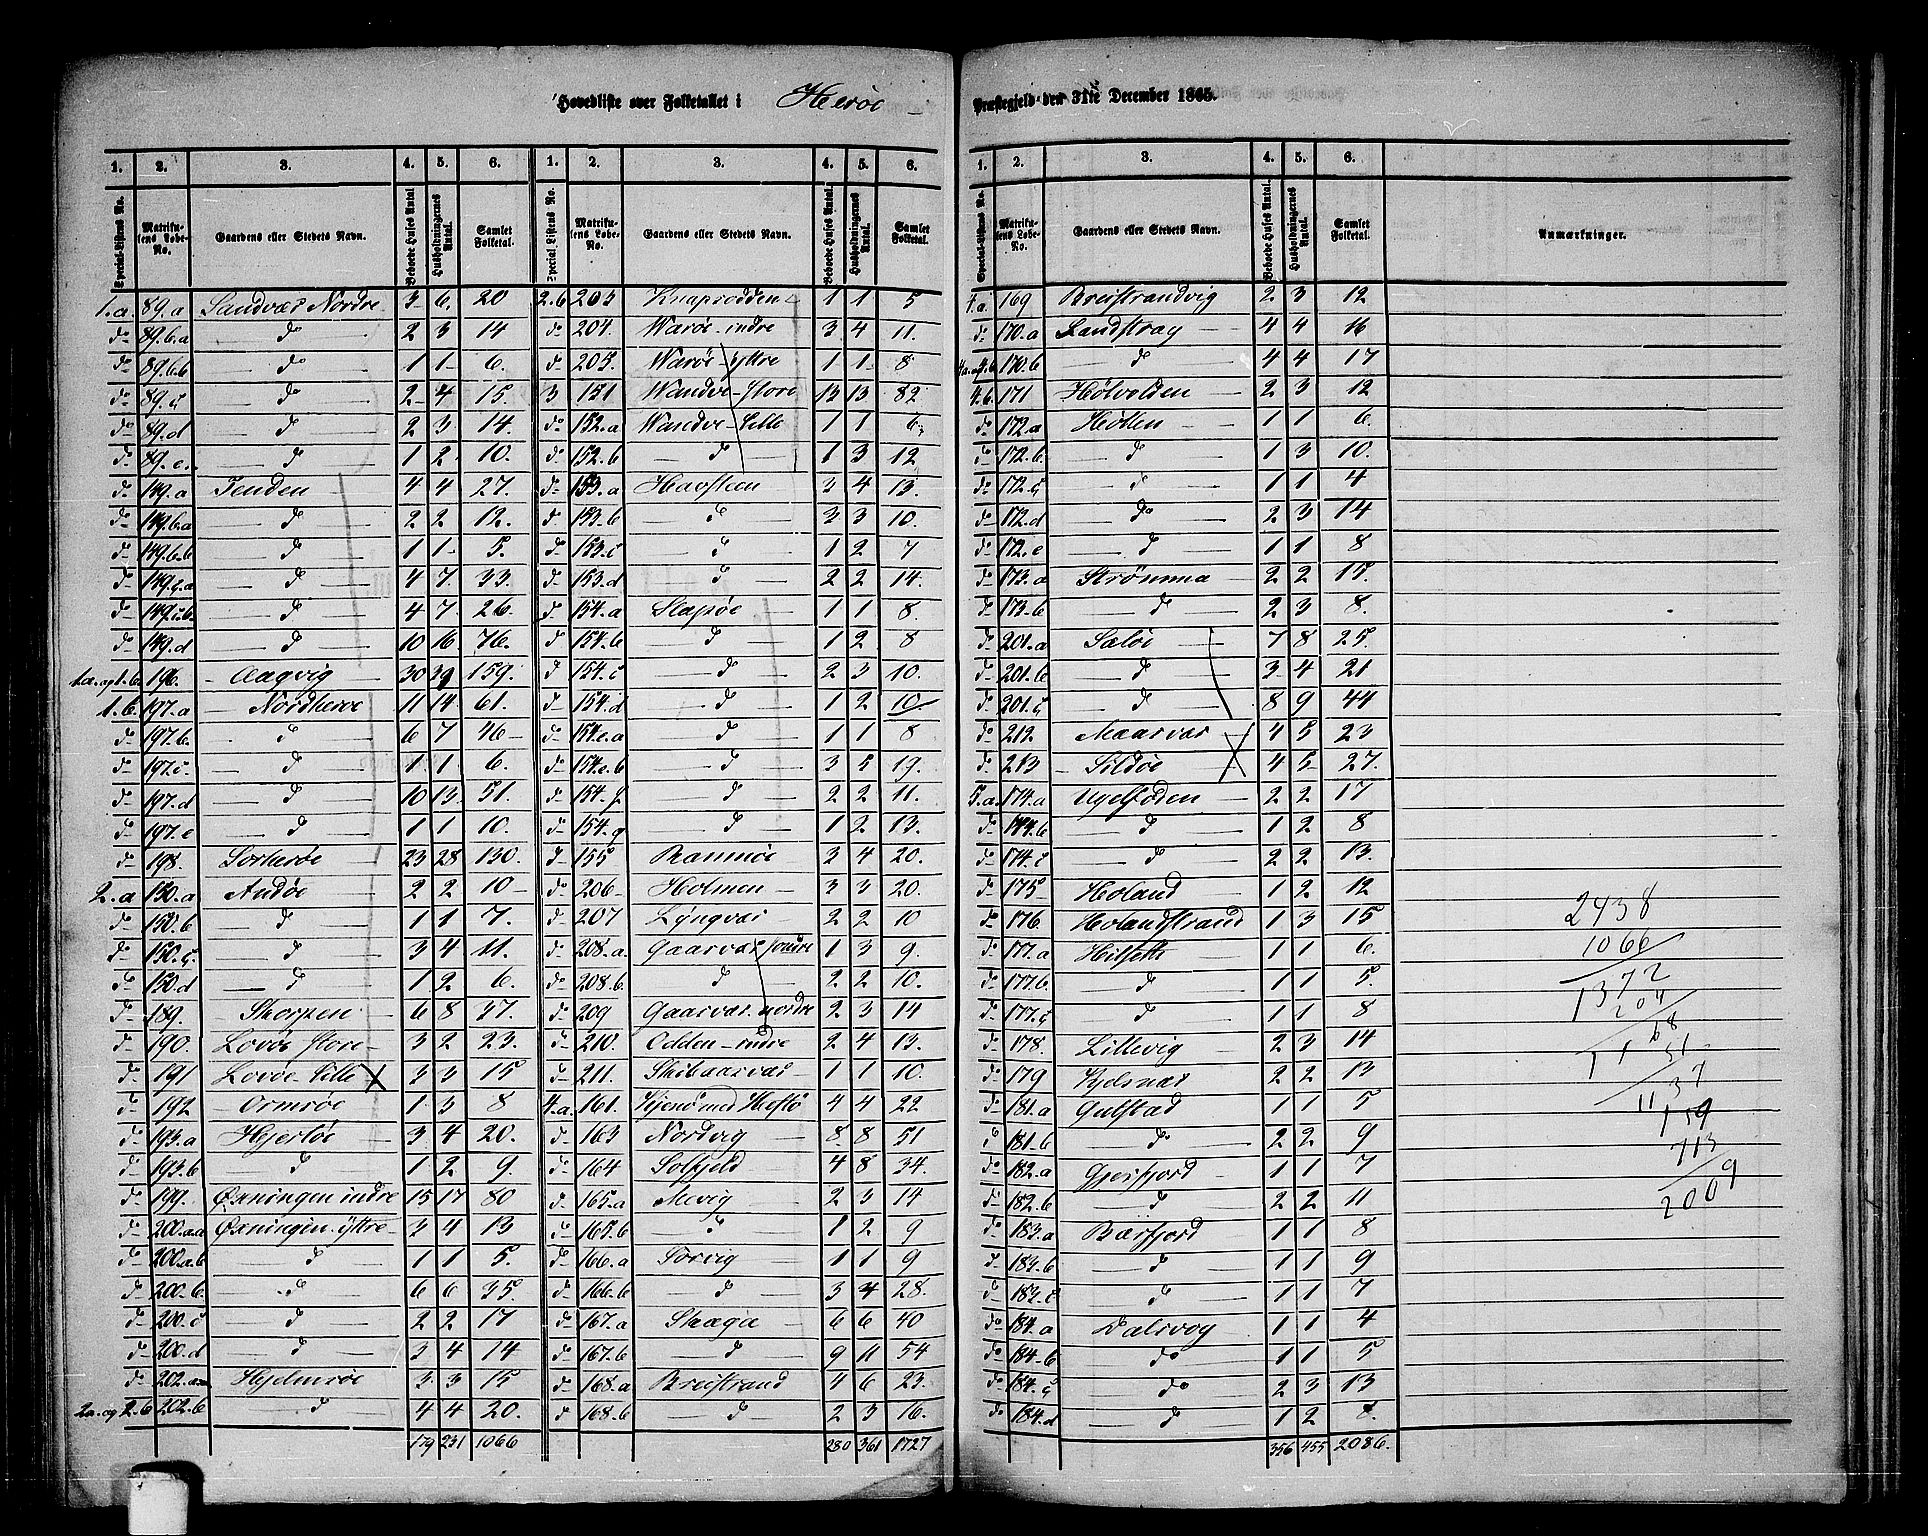 Hovedliste over Folketallet i Herøe Præstegjeld den 31te December 1865.
1. 2. 3. 4. 5. 6. 1. 2. 3. 4. 5. 6.
Special-Listens No. Matrikulens Løbe-No. Gaardens eller Stedets Navn. Beboede Huses Antal Husholdningernes Antal. Samlet Folketal. Special Listens No. Matrikulens Løbe-No. Gaardens eller Stedets Navn. Beboede Huses Antal. Husholdningernes Antal. Samlet Folketal.
1.a. 89.a Sandvær Nordre 3 6 20 2.b 203 Knapsodden 1 1 5
do 89.b.a do 2 3 14 do 204. Warøe indre 3 4 11.
do 89.b.b do 1 1 6. do 205. Warøe yttre 1 1 8
do 89.c do 2 4 15. 3 151 Wandve store 13 13 82
do 89.d do 2 3 14. do 152.a Wandve Lille 1 1 6
do 89.e. do 1 2 10. do 152.b do 1 3 12
do 149.a Tenden 4 4 27. do 153.a Havsteen 3 4 13.
do 149.b.a do 2 2 12. do 153.b do 3 3 10.
do 149.b.b do 1 1 5. do 153.c do 1 2 7
do 149.c.a do 4 7. 33. do 153.d do 2 2 14.
do 149.c.b do 4 7 26. do 154.a Slapøe 1 1 8
do 149.d do 10 16 76. do 154.b do 1 2 8
1a.og1.b 196. Aagvig 30 39 159. do 154.c do 2 3 10.
1.b. 197.a Nordherøe 11 14 61. do 154.d do 1 2 10.
do 197.b. do 6 7 46 do 154.e.a do 1 1 8
do 197.c. do 1 1 6. do 154.e.b do 3 5 19.
do 197.d do 10 13. 51. do 154.f do 2 2 11.
do 197.e do 1 1 10. do 154.g do 1 2 13.
do 198. Sørherøe 23 28 130. do 155 Brannøe 3 4 20.
2.a 150.a Andøe 2 2 10 do 206 Holmen 3 3 20.
do 150.b do 1 1 7. do 207 Lyngvær 2 2 10
do 150.c do 3 4 11. do 208.a Gaasvær søndre 1 3 9.
do 150.d do 1 2 6. do 208.b. do 2 2 10.
do 189. Skorpen 6 8 37. do 209 Gaasvær nordre 2 3 14
do 190. Lovøe store 3 2 23. do 210. Odden indre 2 4 13.
do 191 Lovøe Lille X 3 3 15 do 211. Skibaasvær 1 1 10.
do 192 Ormsøe 1 3 8 4.a. 161. Hjesnø med Hestø 4 4 22
do 193.a Hjertøe 3 4 20. do 163 Nordvig 8 8 51
do 193.b do 1 2 9. do 164 Solfjeld 4 8 34.
do 199. Øxningen indre 15 17 80 do 165.a Mevig 2 3 14
do 200.a.a Øxningen yttre 3 4 13 do 165.b do 1 2 9
do 200.a.b do 1 1 5. do 166.a Sørvig 1 1 9
do 200.b. do 6 6 35. do 166.b do 3 4 28.
do 200.c do 2 2 17 do 167.a Skaga 6 6 40
do 200.d do 3 4 14 do 167.b do 9 11 54
do 202.a Hjelmsøe 3 3 15 do 168.a Breistrand 4 6 23.
2a.og 2.b 202.b do 4 4 20. do 168.b do 2 3 16.
179 231 1066 280 361 1727
1. 2. 3. 4. 5. 6.
Special-Listens No. Matrikulens Løbe-No. Gaardens eller Stedets Navn. Beboede Huses Antal. Husholdningernes Antal. Samlet Folketal. Anmærkninger.
4.a 169 Breistrandvig 2 3 12
do 170.a Landstrag 4 4 16
4a.og4.b 170.b do 4 4 17
4.b. 171 Hølvolden 2 3 12
do 172.a Høtten 1 1 6.
do 172.b. do 1 3 10.
do 172.c do 1 1 4
do 172.d do 2 3 14
do 172.e do 1 1 8
do 173.a Strømma 2 2 15.
do 173.b do 2 3 8.
do 201.a Sæløe 7 8 25.
do 201.b do 3 4 21
do 201.c do 8 9 44
do 212 Maasvær 4 5 23
do 213 Sildøe X 4 5 27.
5.a. 174.a Ugelfoden 2 2 17
do 174.b do 1 2 8
do 174.c do 2 2 13.
do 175 Holand 1 2 12
do 176 Holandstrand 1 3 15
do 177.a Hilsett 1 1 6.
do 177.b. do 1 1 5.
do 177.c do 1 1 8
do 178. Lillevig 2 3 14
do 179 2 2 13
do 181.a Gulstad 1 1 5
do 181.b do 2 2 9
do 182.a Gjesfjord 1 1 7
do 182.b do 2 2 11
do 183.a Bærfjord 1 1 8
do 183.b do 1 1 9
do 183.c do 1 1 7
do 184.a Dalsvog 1 1 4
do 184.b do 1 1 5
do 184.c do 2 3 13
do 184.d do 1 2 8.
356 455 2086.
2438
1066
1372
204
68
11 51
1137
159
713
2009